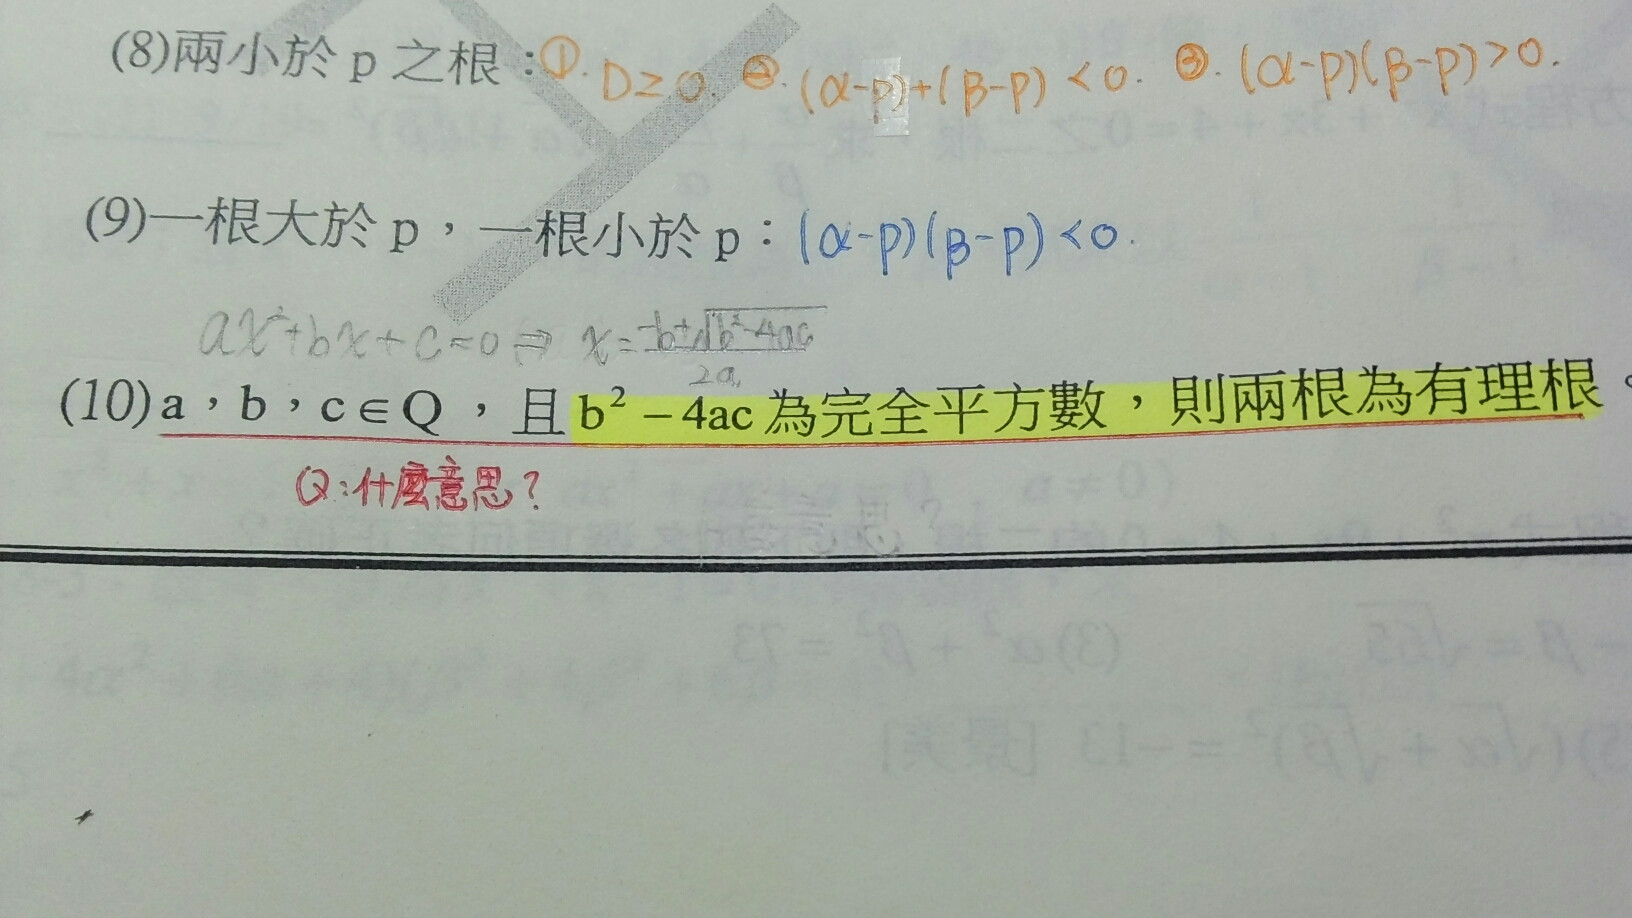 (8)兩小於 p 之根：①. D≥0. ②. (α-p)+(β-p)<0. ③. (α-p)(β-p)>0.
(9)一根大於 p，一根小於 p：(α-p)(β-p)<0.
ax²+bx+c=0 ⇒ x=\frac{-b±√(b²-4ac)}{2a}
(10) a，b，c∈Q ，且 b²－4ac 為完全平方數，則兩根為有理根。
Q:什麼意思?